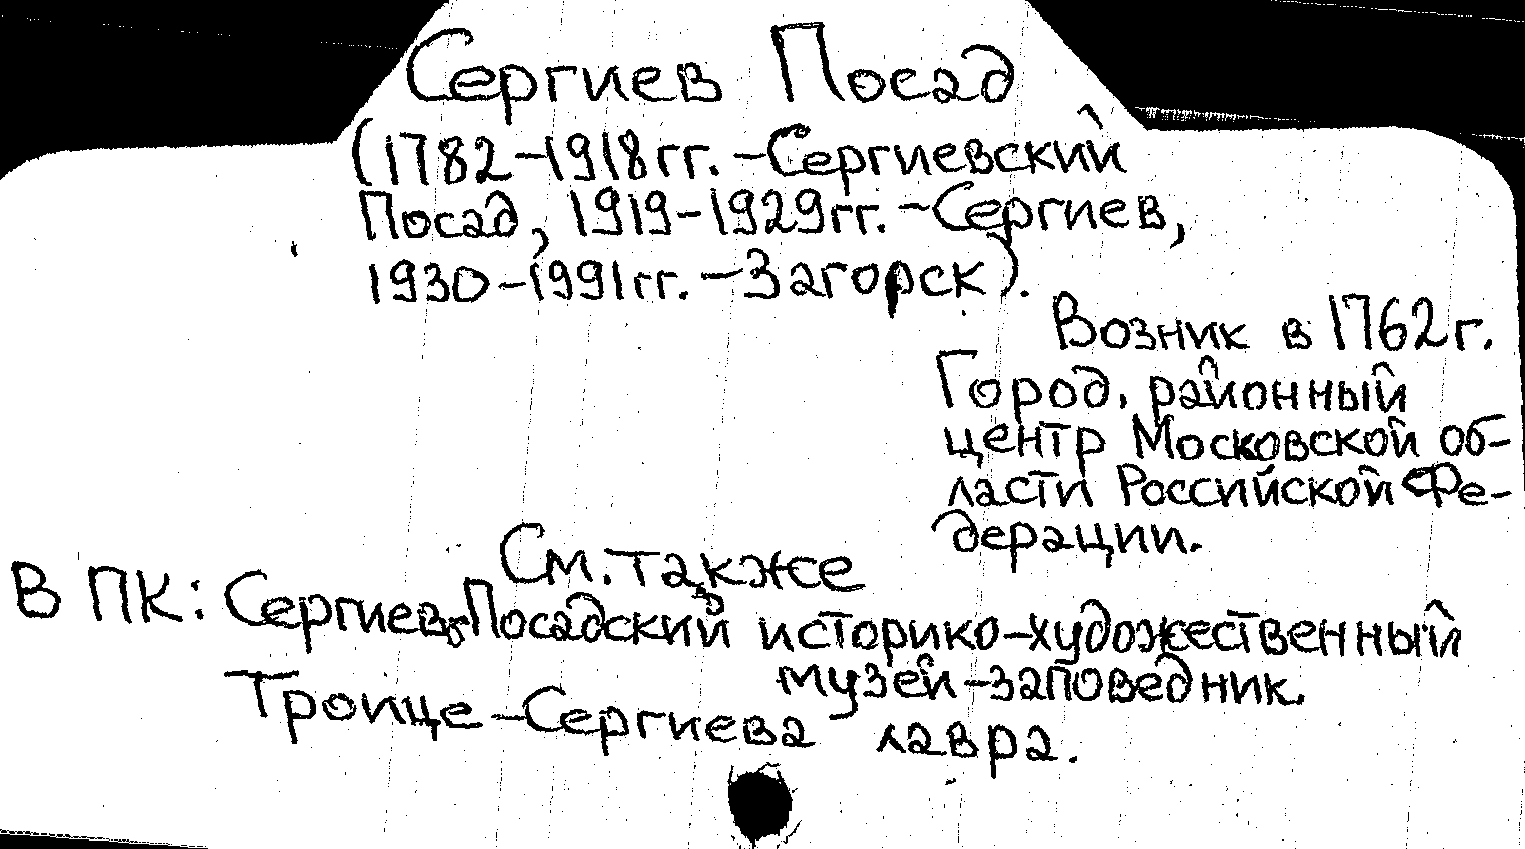 Сергиев Посад
(1782-1918гг. -Сергиевский
Посад, 1919-1929гг. -Сергиев,
1930-1991гг. -Загорск).
Возник в 1762г.
Город, районный
центр Московской об-
ласти Российской Фе-
дерации.
См. также
В ПК: Сергиево-Посадский историко-художественный
музей-заповедник.
Троице-Сергиева лавра.